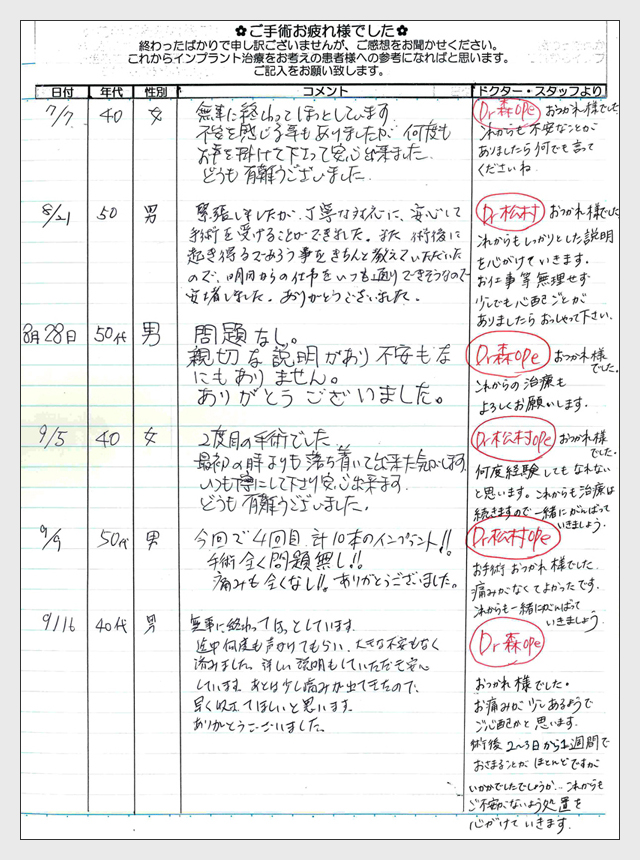 ✿ご手術お疲れ様でした✿
終わったばかりで申し訳ございませんが、ご感想をお聞かせください。
これからインプラント治療をお考えの患者様への参考になればと思います。
ご記入をお願い致します。
日付 年代 性別 コメント ドクター・スタッフより
7/7 40 女
無事に終わってほっとしています。
不安を感じる事もありましたが、何度も
お声を掛けて下さって安心出来ました。
どうも有難うございました。
Dr森ope おつかれ様でした
これからも不安なことが
ありましたら何でも言って
くださいね
8/21 50 男
緊張しましたが、丁寧な対応に、安心して
手術を受けることができました。また術後に
起き得るであろう事をきちんと教えていただいた
ので、明日からの仕事もいつも通りできそうなので
安堵しました。ありがとうございました。
Dr松村 おつかれ様でした
これからもしっかりとした説明
を心がけていきます。
お仕事等無理せず
少しでも心配ごとが
ありましたらおっしゃって下さい。
8月28日 50代 男
問題なし。
親切な説明があり不安もな
にもありません。
ありがとうございました。
Dr森ope おつかれ様
でした。
これからの治療も
よろしくお願いします。
9/5 40 女
2度目の手術でした
最初の時よりも落ち着いて出来た気がします
いつも丁寧にして下さり安心出来ます
どうも有難うございました。
Dr松村ope おつかれ様
でした。
何度経験してもなれない
と思います。これからも治療は
続きますので一緒にがんばって
いきましょう。
9/9 50代 男
今回で4回目、計10本のインプラント!!
手術全く問題無し!!
痛みも全くなし!!ありがとうございました。
Dr松村ope
お手術おつかれ様でした。
痛みがなくてよかったです。
これからも一緒にがんばって
いきましょう。
9/16 40代 男
無事に終わってほっとしています。
途中何度も声かけてもらい、大きな不安もなく
済みました。詳しい説明もしていただき安心
しています。あとは少し痛みが出てきたので、
早く収まってほしいと思います。
ありがとうございました。
Dr森ope
おつかれ様でした。
お痛みが少しあるようで
ご心配かと思います。
術後2~3日から1週間で
おさまることがほとんどですが
いかがでしたでしょうか…これからも
ご不安がないよう処置を
心がけていきます。